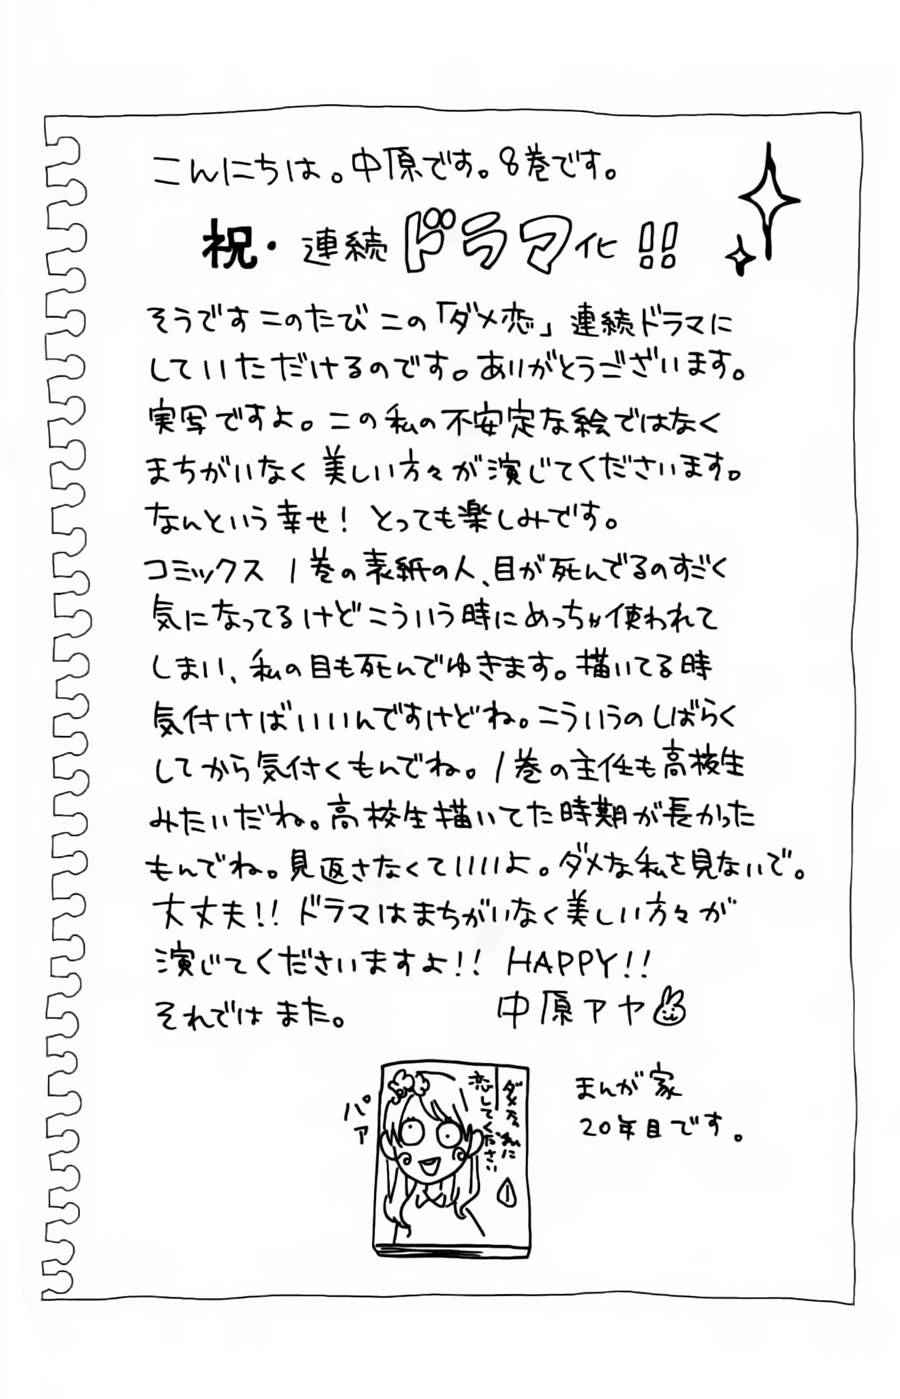 こんにちは。中原です。8巻です。
祝・連続ドラマ化!!
そうですこのたびこの「ダメ恋」連続ドラマに
していただけるのです。ありがとうございます。
実写ですよ。この私の不安定な絵ではなく
まちがいなく美しい方々が演じてくださいます。
なんという幸せ!とっても楽しみです。
コミックス1巻の表紙の人、目が死んでるのすごく
気になってるけどこういう時にめっちゃ使われて
しまい、私の目も死んでゆきます。描いてる時
気付けばいいんですけどね。こういうのしばらく
してから気付くもんでね。1巻の主任も高校生
みたいだね。高校生描いてた時期が長かった
もんでね。見返さなくていいよ。ダメな私を見ないで。
大丈夫!!ドラマはまちがいなく美しい方々が
演じてくださいますよ!!HAPPY!!
それではまた。 中原アヤ
まんが家
20年目です。
パァ
ダメな私に
恋してください
1